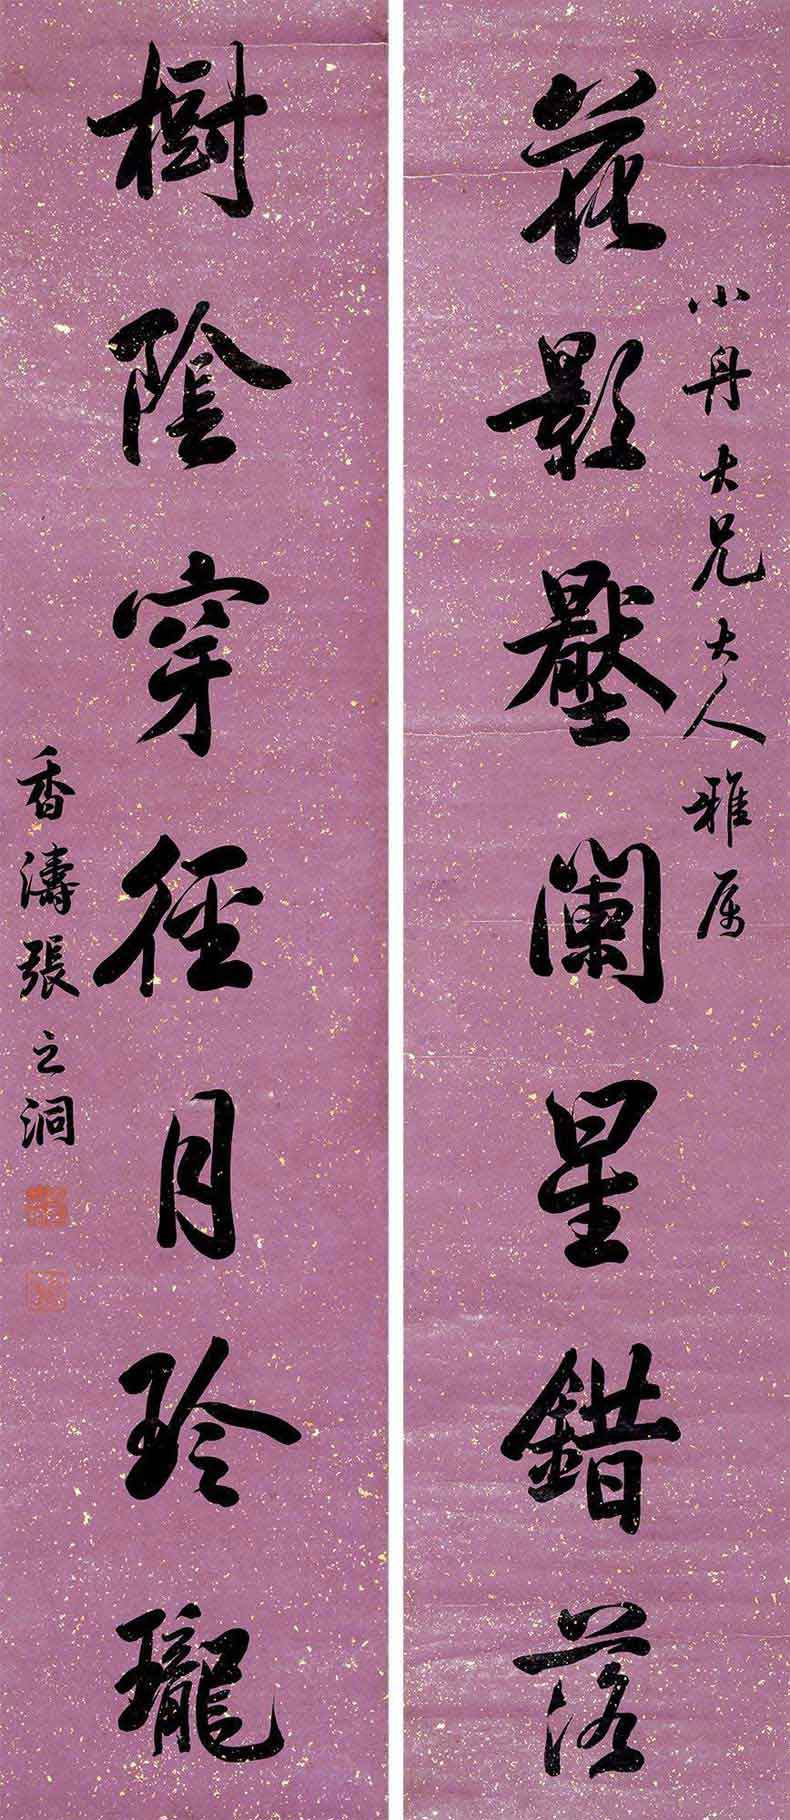 花影壓闌星錯落
小舟大兄大人雅屬
樹陰穿徑月玲瓏
香濤張之洞